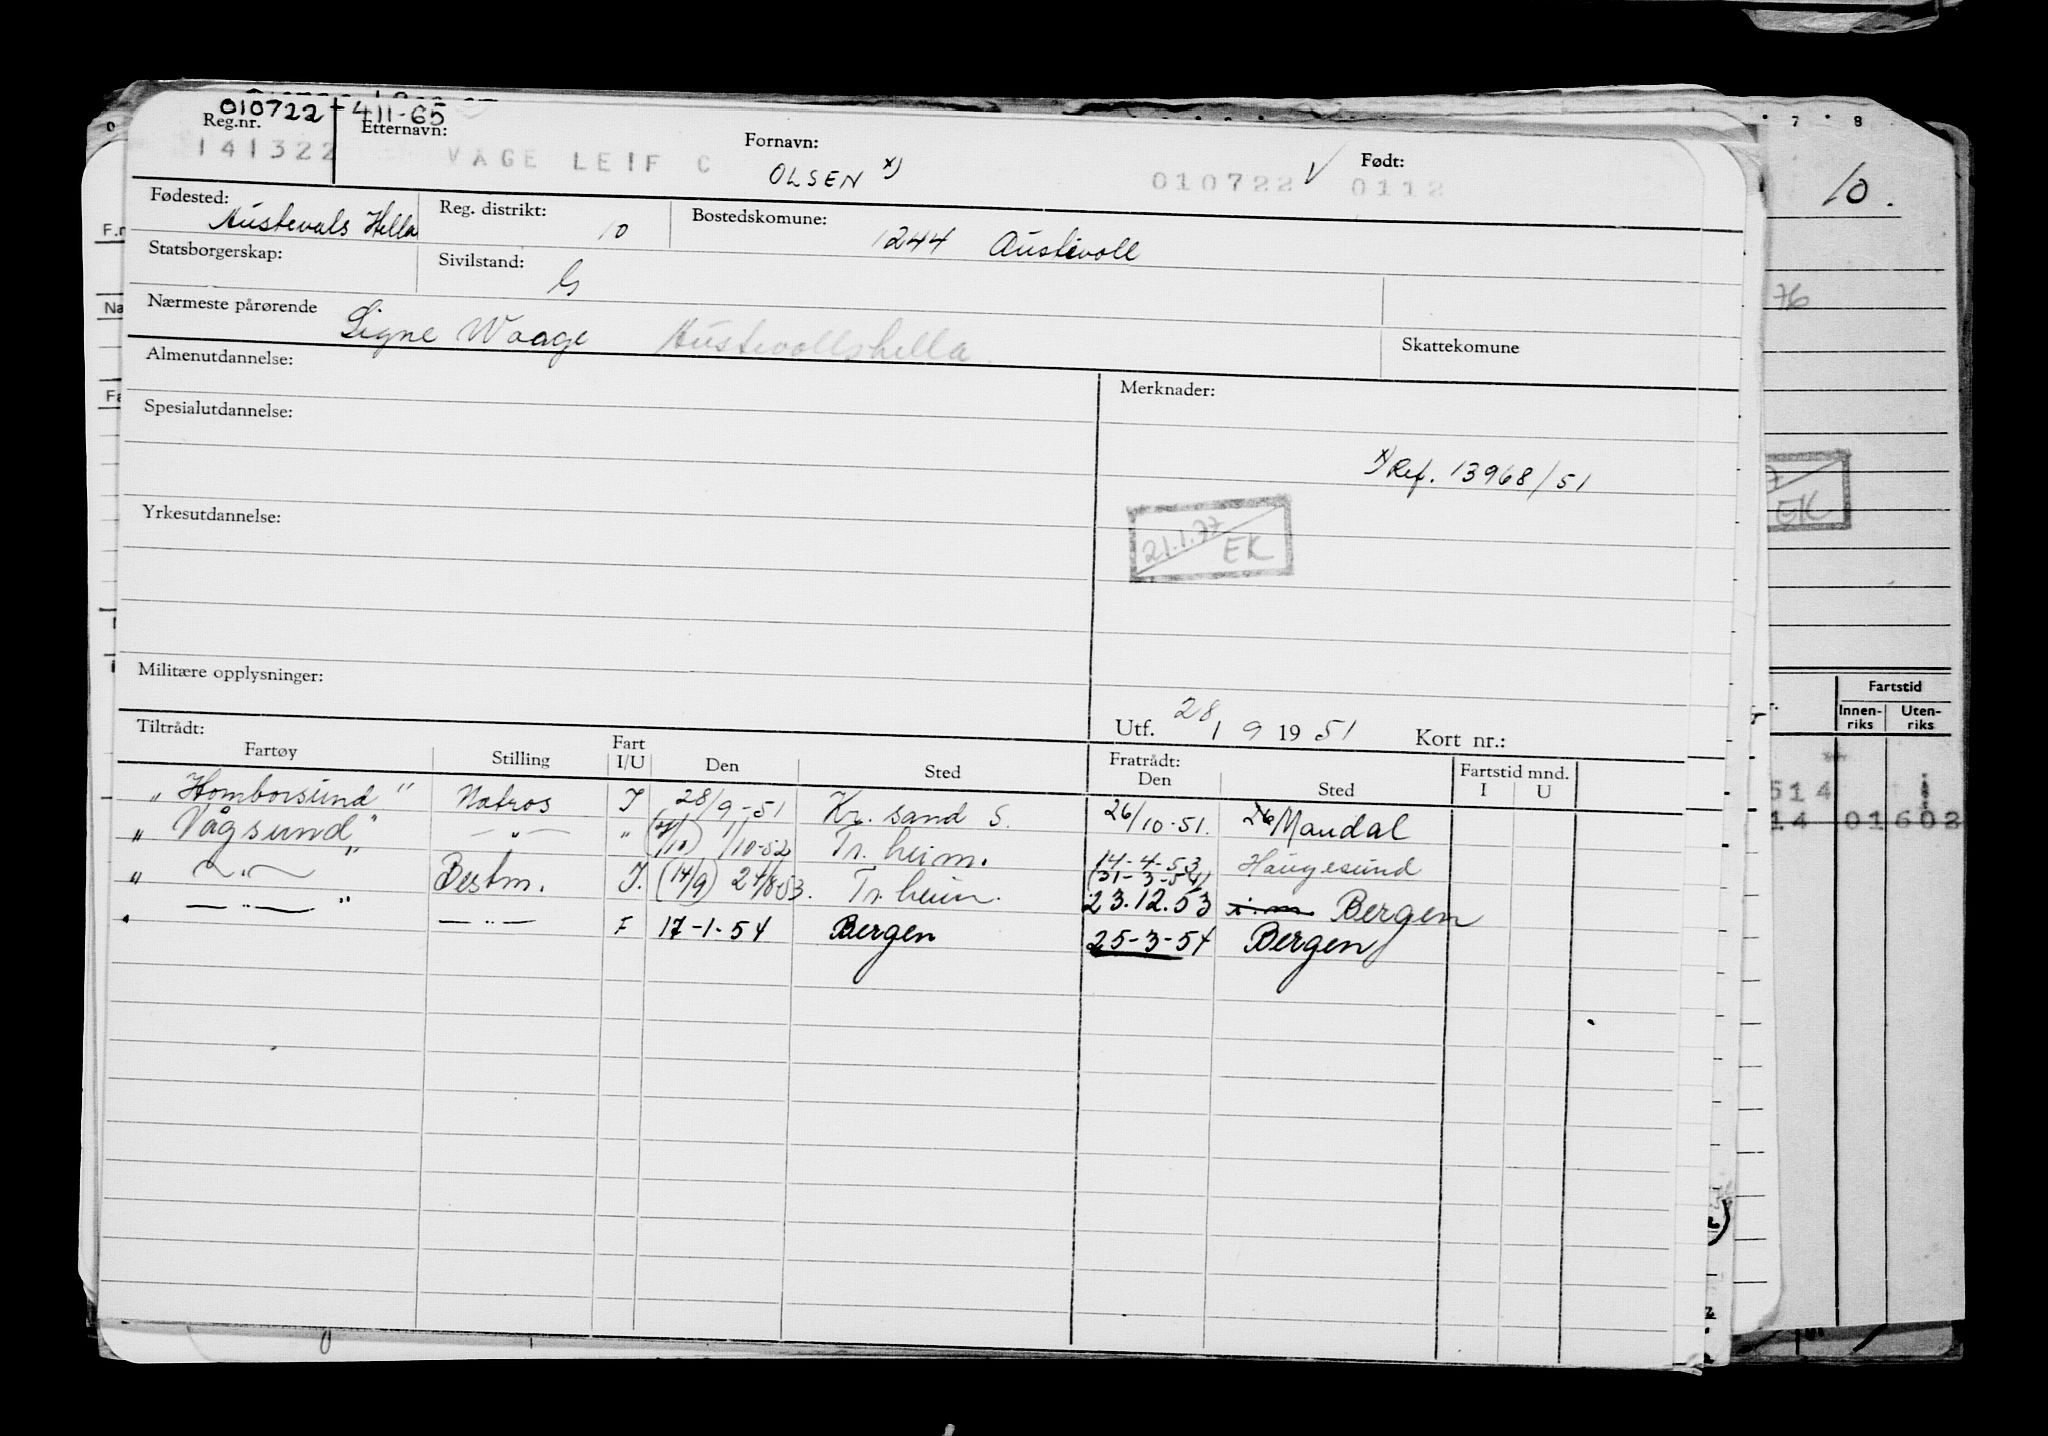 010722 411-65
Reg.nr. Etternavn: Fornavn: Født:
141322 VÅGE LEIF C OLSEN x) 010722 V 0112
Fødested: Austevols Hella Reg. distrikt: 10 Bostedskomune: 1244 Austevoll
Statsborgerskap: Sivilstand: G
Nærmeste pårørende Signe Waage Austevollshella Skattekomune
Almenutdannelse: Merknader:
Spesialutdannelse:
x) Ref. 13968/51
Yrkesutdannelse:
21.1.77 EK
Militære opplysninger:
Utf. 28/9 1951 Kort nr.:
Tiltrådt: Fratrådt:
Fartøy Stilling Fart I/U Den Sted Den Sted Fartstid mnd. I U
"Homborsund" Matros I 28/9-51 Kr. sand S. 26/10-51. Mandal
"Vågsund" — " — " 1/10-52 Tr. heim. 14-4-53 Haugesund
" — " — " Bestm. I. (14/9) 24/8-53. Tr. heim. (31-3-54) 23.12.53 i.m. Bergen
" — " — " — " — F 17-1-54 Bergen 25-3-54 Bergen
7 8
10.
76
EK
Fartstid
Innen-riks Uten-riks
514
14 01602